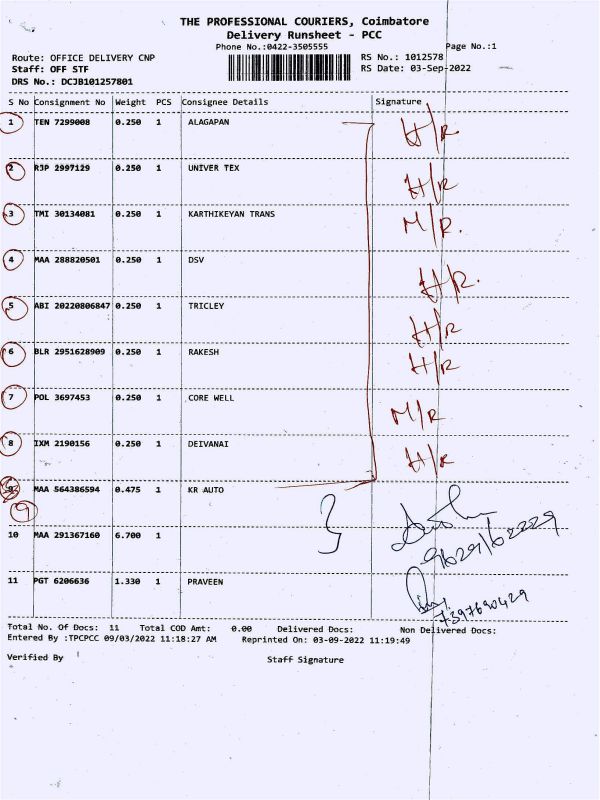 THE PROFESSIONAL COURIERS, Coimbatore
Delivery Runsheet - PCC
Phone No.:0422-3505555
Page No.:1
Route: OFFICE DELIVERY CNP
RS No.: 1012578
Staff: OFF STF
RS Date: 03-Sep-2022
DRS No.: DCJB101257801
S No Consignment No Weight PCS Consignee Details Signature
1 TEN 7299008 0.250 1 ALAGAPAN H/R
2 RJP 2997129 0.250 1 UNIVER TEX H/R
3 TMI 30134081 0.250 1 KARTHIKEYAN TRANS M/R.
4 MAA 288820501 0.250 1 DSV H/R.
5 ABI 20220806847 0.250 1 TRICLEY H/R
6 BLR 2951628909 0.250 1 RAKESH H/R
7 POL 3697453 0.250 1 CORE WELL M/R
8 IXM 2190156 0.250 1 DEIVANAI H/R
9 MAA 564386594 0.475 1 KR AUTO
9
10 MAA 291367160 6.700 1
11 PGT 6206636 1.330 1 PRAVEEN
7397690429
Total No. Of Docs: 11 Total COD Amt: 0.00 Delivered Docs: Non Delivered Docs:
Entered By :TPCPCC 09/03/2022 11:18:27 AM Reprinted On: 03-09-2022 11:19:49
Verified By Staff Signature